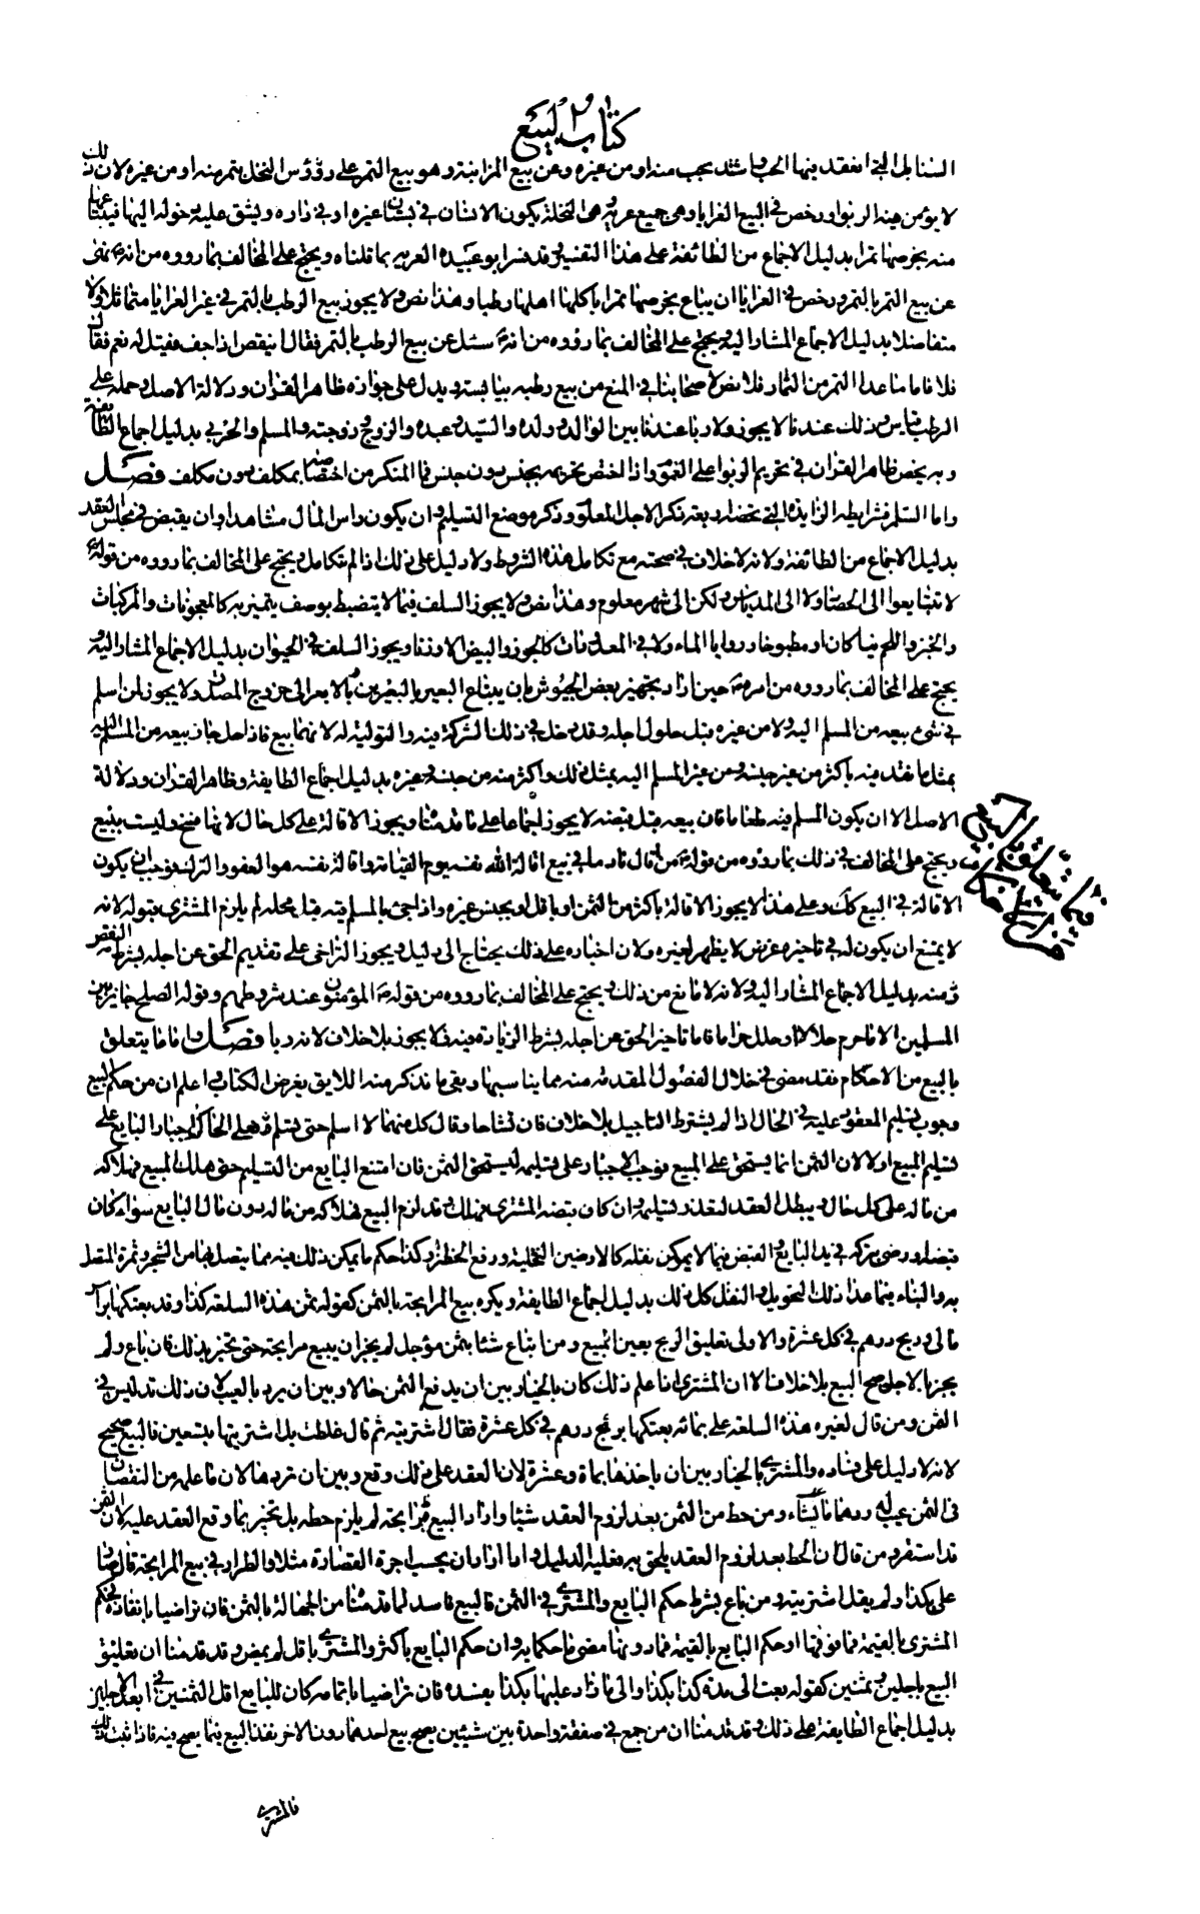 كتاب البيع
السنابل التي انعقد فيها الحب واشتد بحب منه او من غيره وعن بيع المزابنة وهو بيع التمر على رؤوس النخل بتمر منه او من غيره لان ذلك
لا يؤمن فيه الربوا ورخص في البيع العرايا وهي جميع عرية وهي النخلة يكون لانسان في بستان غيره او في داره ويشق عليه دخوله اليها فيبتاعها
منه بخرصها تمرا بدليل الاجماع من الطائفة على هذا التفسير وقد فسر ابو عبيدة العرية بما قلناه ويحتج على المخالف بما رووه من انه نهى
عن بيع التمر بالتمر ورخص في العرايا ان يباع بخرصها تمرا ياكلها اهلها رطبا وهذا نص ولا يجوز بيع الرطب بالتمر في غير العرايا متماثلا ولا
متفاضلا بدليل الاجماع المشار اليه ويحتج على المخالف بما رووه من انه سئل عن بيع الرطب بالتمر فقال اينقص اذا جف فقيل له نعم فقال
فلا فاما ما عدا التمر من الثمار فلا نص لاصحابنا في المنع من بيع رطبه بيابسه ويدل على جوازه ظاهر القران ودلالة الاصل وحمله على
الرطب قياس وذلك عندنا لا يجوز ولا ربا عندنا بين الوالد وولده والسيد وعبده والزوج وزوجته والمسلم والحربي بدليل اجماع الطائفة
وبه يخص ظاهر القران في تحريم الربوا على العموم واذا اختص تحريمه بجنس دون جنس فما المنكر من اختصاصه بمكلف دون مكلف فصل
واما السلم فشرايطه الزايدة التي تخصه اربعة ذكر الاجل المعلوم وذكر موضع التسليم وان يكون راس المال مشاهدا وان يقبض في مجلس العقد
بدليل الاجماع من الطائفة ولانه لا خلاف في صحته مع تكامل هذه الشروط ولا دليل على ذلك اذا لم تتكامل ويحتج على المخالف بما رووه من قوله
لا تتبايعوا الى الحصاد ولا الى الدياس ولكن الى شهر معلوم وهذا نص ولا يجوز السلف فيما لا ينضبط بوصف يتميز به كالمعجونات والمركبات
والخبز واللحم نيا كان او مطبوخا وروايا الماء ولا في المعدودات كالجوز والبيض الا وزنا ويجوز السلف في الحيوان بدليل الاجماع المشار اليه و
يحتج على المخالف بما رووه من امره حين اراد تجهيز بعض الجيوش بان يبتاع البعير بالبعيرين وبالابعر الى خروج المصدق ولا يجوز لمن اسلم
في شئ بيعه من المسلم اليه ولا من غيره قبل حلول اجله وقد دخل في ذلك الشركة فيه والتولية له لانهما بيع فاذا حل جاز بيعه من المسلم اليه
بمثل ما نقد فيه باكثر من غير جنسه ومن غير المسلم اليه بمثل ذلك واكثر منه من جنسه وغيره بدليل اجماع الطايفة وظاهر القران ودلالة
الاصل الا ان يكون المسلم فيه طعاما فان بيعه قبل قبضه لا يجوز اجماعا على ما قدمنا ويجوز الاقالة على كل حال لانها فسخ وليست ببيع
ويحتج على المخالف في ذلك بما رووه من قوله من اقال نادما في بيع اقاله الله نفسه يوم القيامة واقالة نفسه هو العفو والترك فوجب ان يكون
الاقالة في البيع كك وعلى هذا لا يجوز الاقالة باكثر من الثمن او باقل او بجنس غيره واذا جئ بالمسلم فيه قبل محله لم يلزم المشتري قبوله لانه
لا يمتنع ان يكون له في تاخيره غرض لا يظهر لغيره ولان اجباره على ذلك يحتاج الى دليل ويجوز التراضي على تقديم الحق عن اجله بشرط النقص
منه بدليل الاجماع المشار اليه ولانه لا مانع من ذلك ويحتج على المخالف بما رووه من قوله المؤمنون عند شروطهم وقوله الصلح جايز بين
المسلمين الا ما حرم حلالا او حلل حراما فاما تاخير الحق عن اجله بشرط الزيادة فيه فلا يجوز بلا خلاف لانه ربا فصل فاما ما يتعلق
بالبيع من الاحكام فقد مضى في خلال الفصول المقدمة منه مما يناسبها وبقي ما نذكر منه اللايق بغرض الكتاب واعلم ان من حكم البيع
وجوب تسليم المعقود عليه في الحال اذا لم يشترط التاجيل بلا خلاف فان تشاحا وقال كل منهما لا اسلم حتى اتسلم فعلى الحاكم اجبار البايع على
تسليم المبيع اولا لان الثمن انما يستحق على المبيع فوجب الاجبار على تسليمه ليستحق الثمن فان امتنع البايع من التسليم حتى هلك المبيع فهلاكه
من ماله على كل حال ويبطل العقد لتعذر تسليمه وان كان قبضه المشتري فهلك وقد لزم البيع فهلاكه من ماله دون مال البايع سواء كان
قبضه او رضي بتركه في يد البايع والقبض فيما لا يمكن نقله كالارضين التخلية ورفع الحظر وكذا حكم ما يمكن ذلك فيه مما يتصل بها من الشجر وثمرة المتصل
به والبناء وفيما عدا ذلك التحويل والنقل كل ذلك بدليل اجماع الطايفة ويكره بيع المرابحة بالثمن كقوله ثمن هذه السلعة كذا وقد بعتكها برأس
مالي وربح درهم في كل عشرة والاولى تعليق الربح بعين المبيع ومن ابتاع شئا بثمن مؤجل لم يجز ان يبيع مرابحة حتى يخبر بذلك فان باع ولم
يخبر بالاجل صح البيع بلا خلاف الا ان المشتري اذا علم ذلك كان بالخيار بين ان يدفع الثمن حالا وبين ان يرد بالعيب لان ذلك تدليس في
الثمن ومن قال لغيره هذه السلعة على بمائة بعتكها بربح درهم في كل عشرة فقال اشتريته ثم قال غلطت بل اشتريتها بتسعين فالبيع صحيح
لانه لا دليل على فساده والمشتري بالخيار بين ان ياخذها بمائة وعشرة لان العقد على ذلك وقع وبين ان يردها لان ما علمه من النقصان
في الثمن عيب له ردها ما شاء ومن حط من الثمن بعد لزوم العقد شيئا واراد البيع مرابحة لم يلزم حطه بل يخبر بما وقع العقد عليه لان الثمن
قد استقر ومن قال ان الحط بعد لزوم العقد يلحق به فعليه الدليل واما اذا اراد ان يحسب اجرة القصارة مثلا والطراز في بيع المرابحة قال هذا
على بكذا ولم يقل اشتريته ومن باع بشرط حكم البايع والمشتري في الثمن فالبيع فاسد لما قدمنا من الجهالة بالثمن فان تراضيا بانفاذه فحكم
المشتري بالقيمة فما فوقها او حكم البايع بالقيمة فما دونها مضى ما حكما به وان حكم البايع باكثر والمشتري باقل لم يمض وقد قدمنا ان تعليق
البيع باجلين وثمنين كقوله بعت الى مدة كذا بكذا والى ما زاد عليها بكذا يفسده فان تراضيا بامضائه كان للبايع اقل الثمنين في ابعد الاجلين
بدليل اجماع الطايفة على ذلك وقد قدمنا ان من جمع في صفقة واحدة بين شيئين يصح بيع احدهما دون الاخر نفذ البيع فيما يصح فيه فاذا ثبت ذلك
فالمشتري
فيما يتعلق بالبيع
من الاحكام